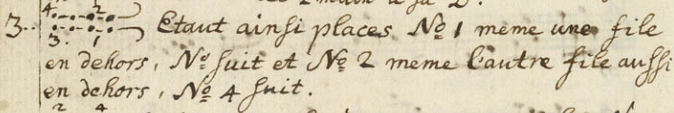 4 2
3.. Etant ainsi places No 1 meme une file
3. 1
en dehors, No suit et No 2 meme l'autre file aussi
en dehors, No 4 suit.
2 4